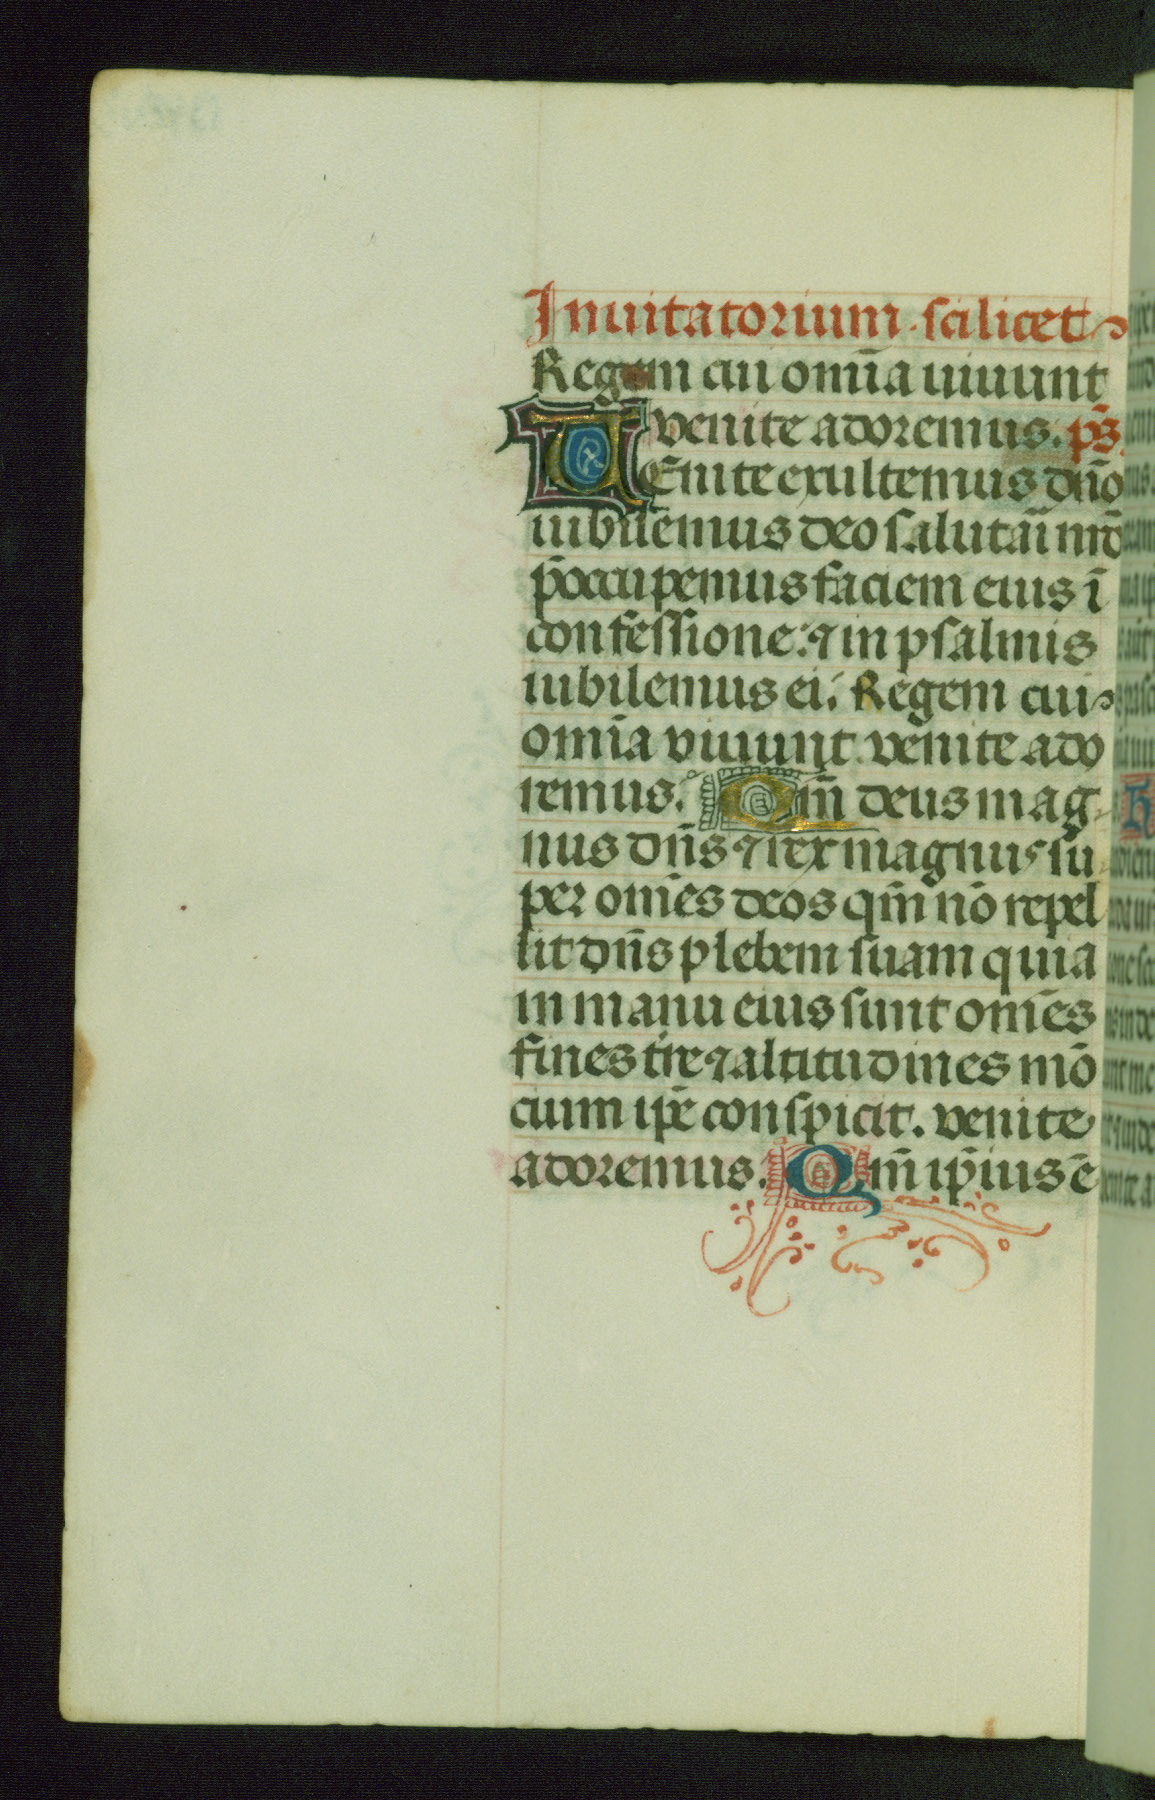 Inuitatorium. scilicet
Regem cui om̄ia uiuunt
venite adoremus. p̄s.
UEnite exultemus dn̄o
iubilemus deo salutāi nr̄o
p̄occupemus faciem eius ī
confessione: ⁊ in psalmis
iubilemus ei. Regem cui
omīa viuunt venite ado
remus. Qm̄ deus mag
nus dn̄s ⁊ rex magnus su
per om̄es deos qm̄ nō repel
lit dn̄s plebem suam quia
in manu eius sunt om̄es
fines tr̄e ⁊ altitudines mō
cium ip̄e conspicit. venite
adoremus. Qm̄ ip̄ius ē